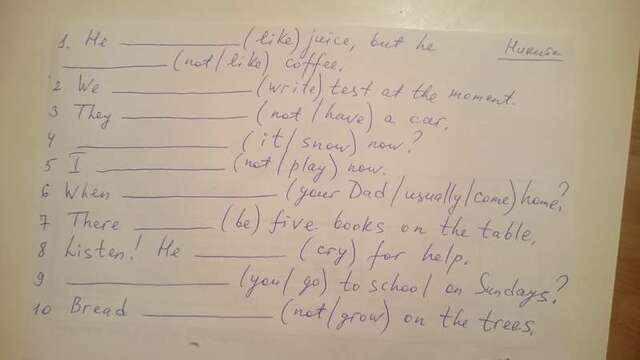 1. He ____________ (like) juice, but he
____________ (not/like) coffee.
2 We ____________ (write) test at the moment.
3 They ____________ (not/have) a car.
4 ____________ (it/snow) now?
5 I ____________ (not/play) now.
6 When ____________ (your Dad/usually/come) home?
7 There ________ (be) five books on the table.
8 Listen! He ________ (cry) for help.
9 ____________ (you/go) to school on Sundays?
10 Bread ____________ (not/grow) on the trees.